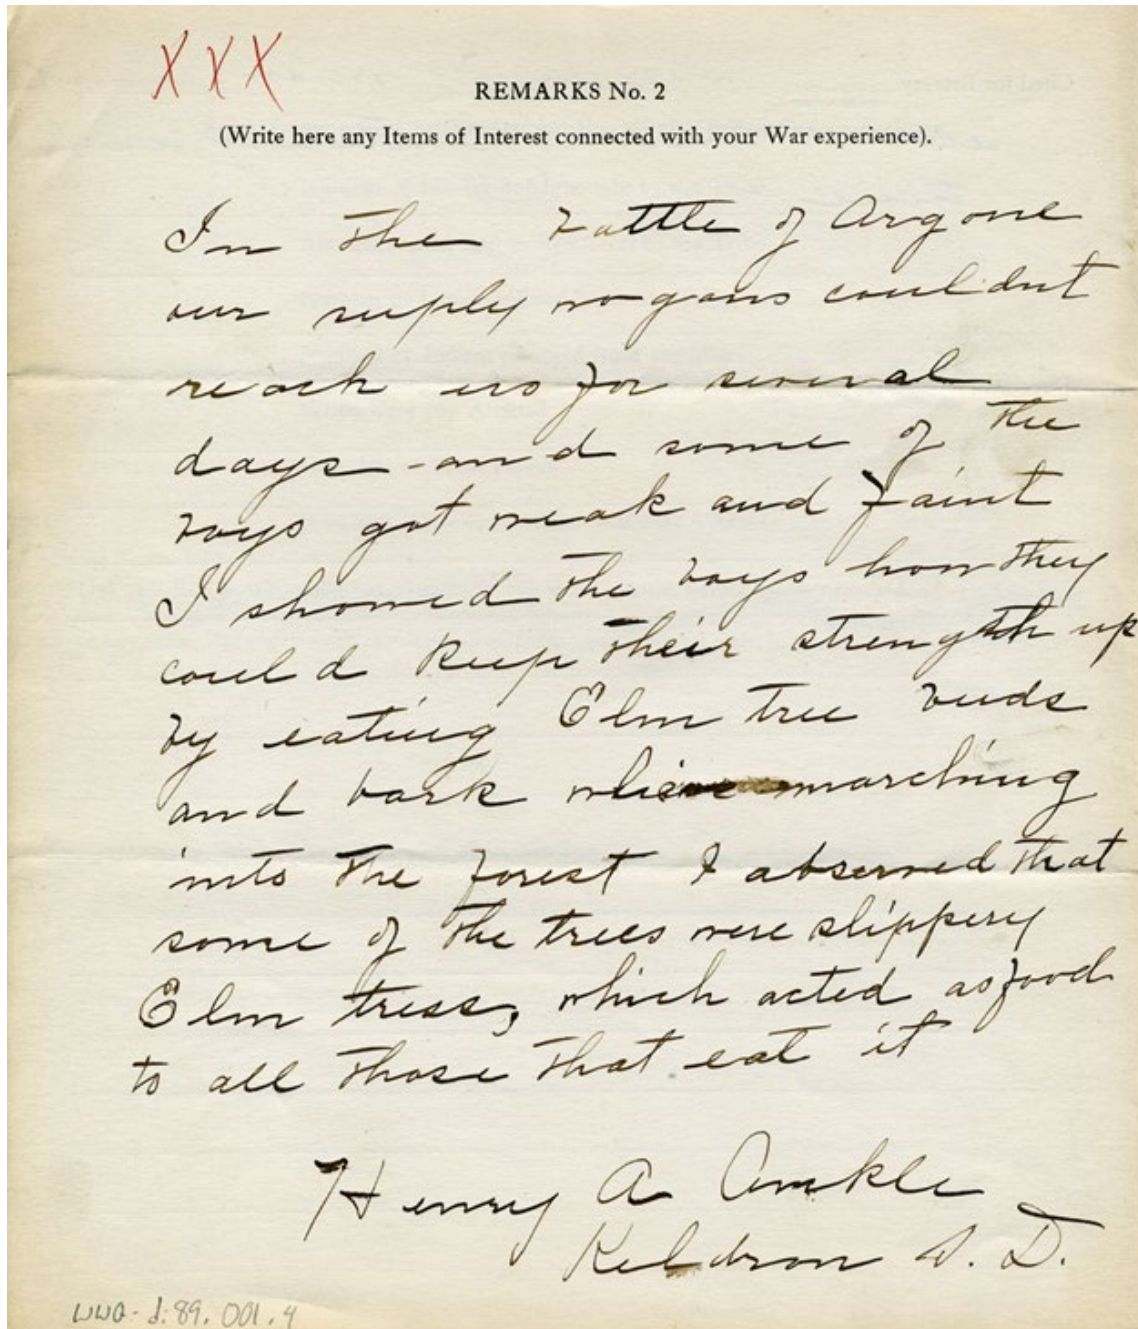 XXX
REMARKS No. 2
(Write here any Items of Interest connected with your War experience).
In the battle of Argone
our suply wagons couldnt
reach us for several
days and some of the
boys got weak and faint
I showed the boys how they
could keep their strength up
by eating Elm tree buds
and bark while marching
into the forest I observed that
some of the trees were slippery
Elm tress, which acted as food
to all those that eat it
Henry A Ankle
Keldron S. D.
WWQ-d:89.001.4